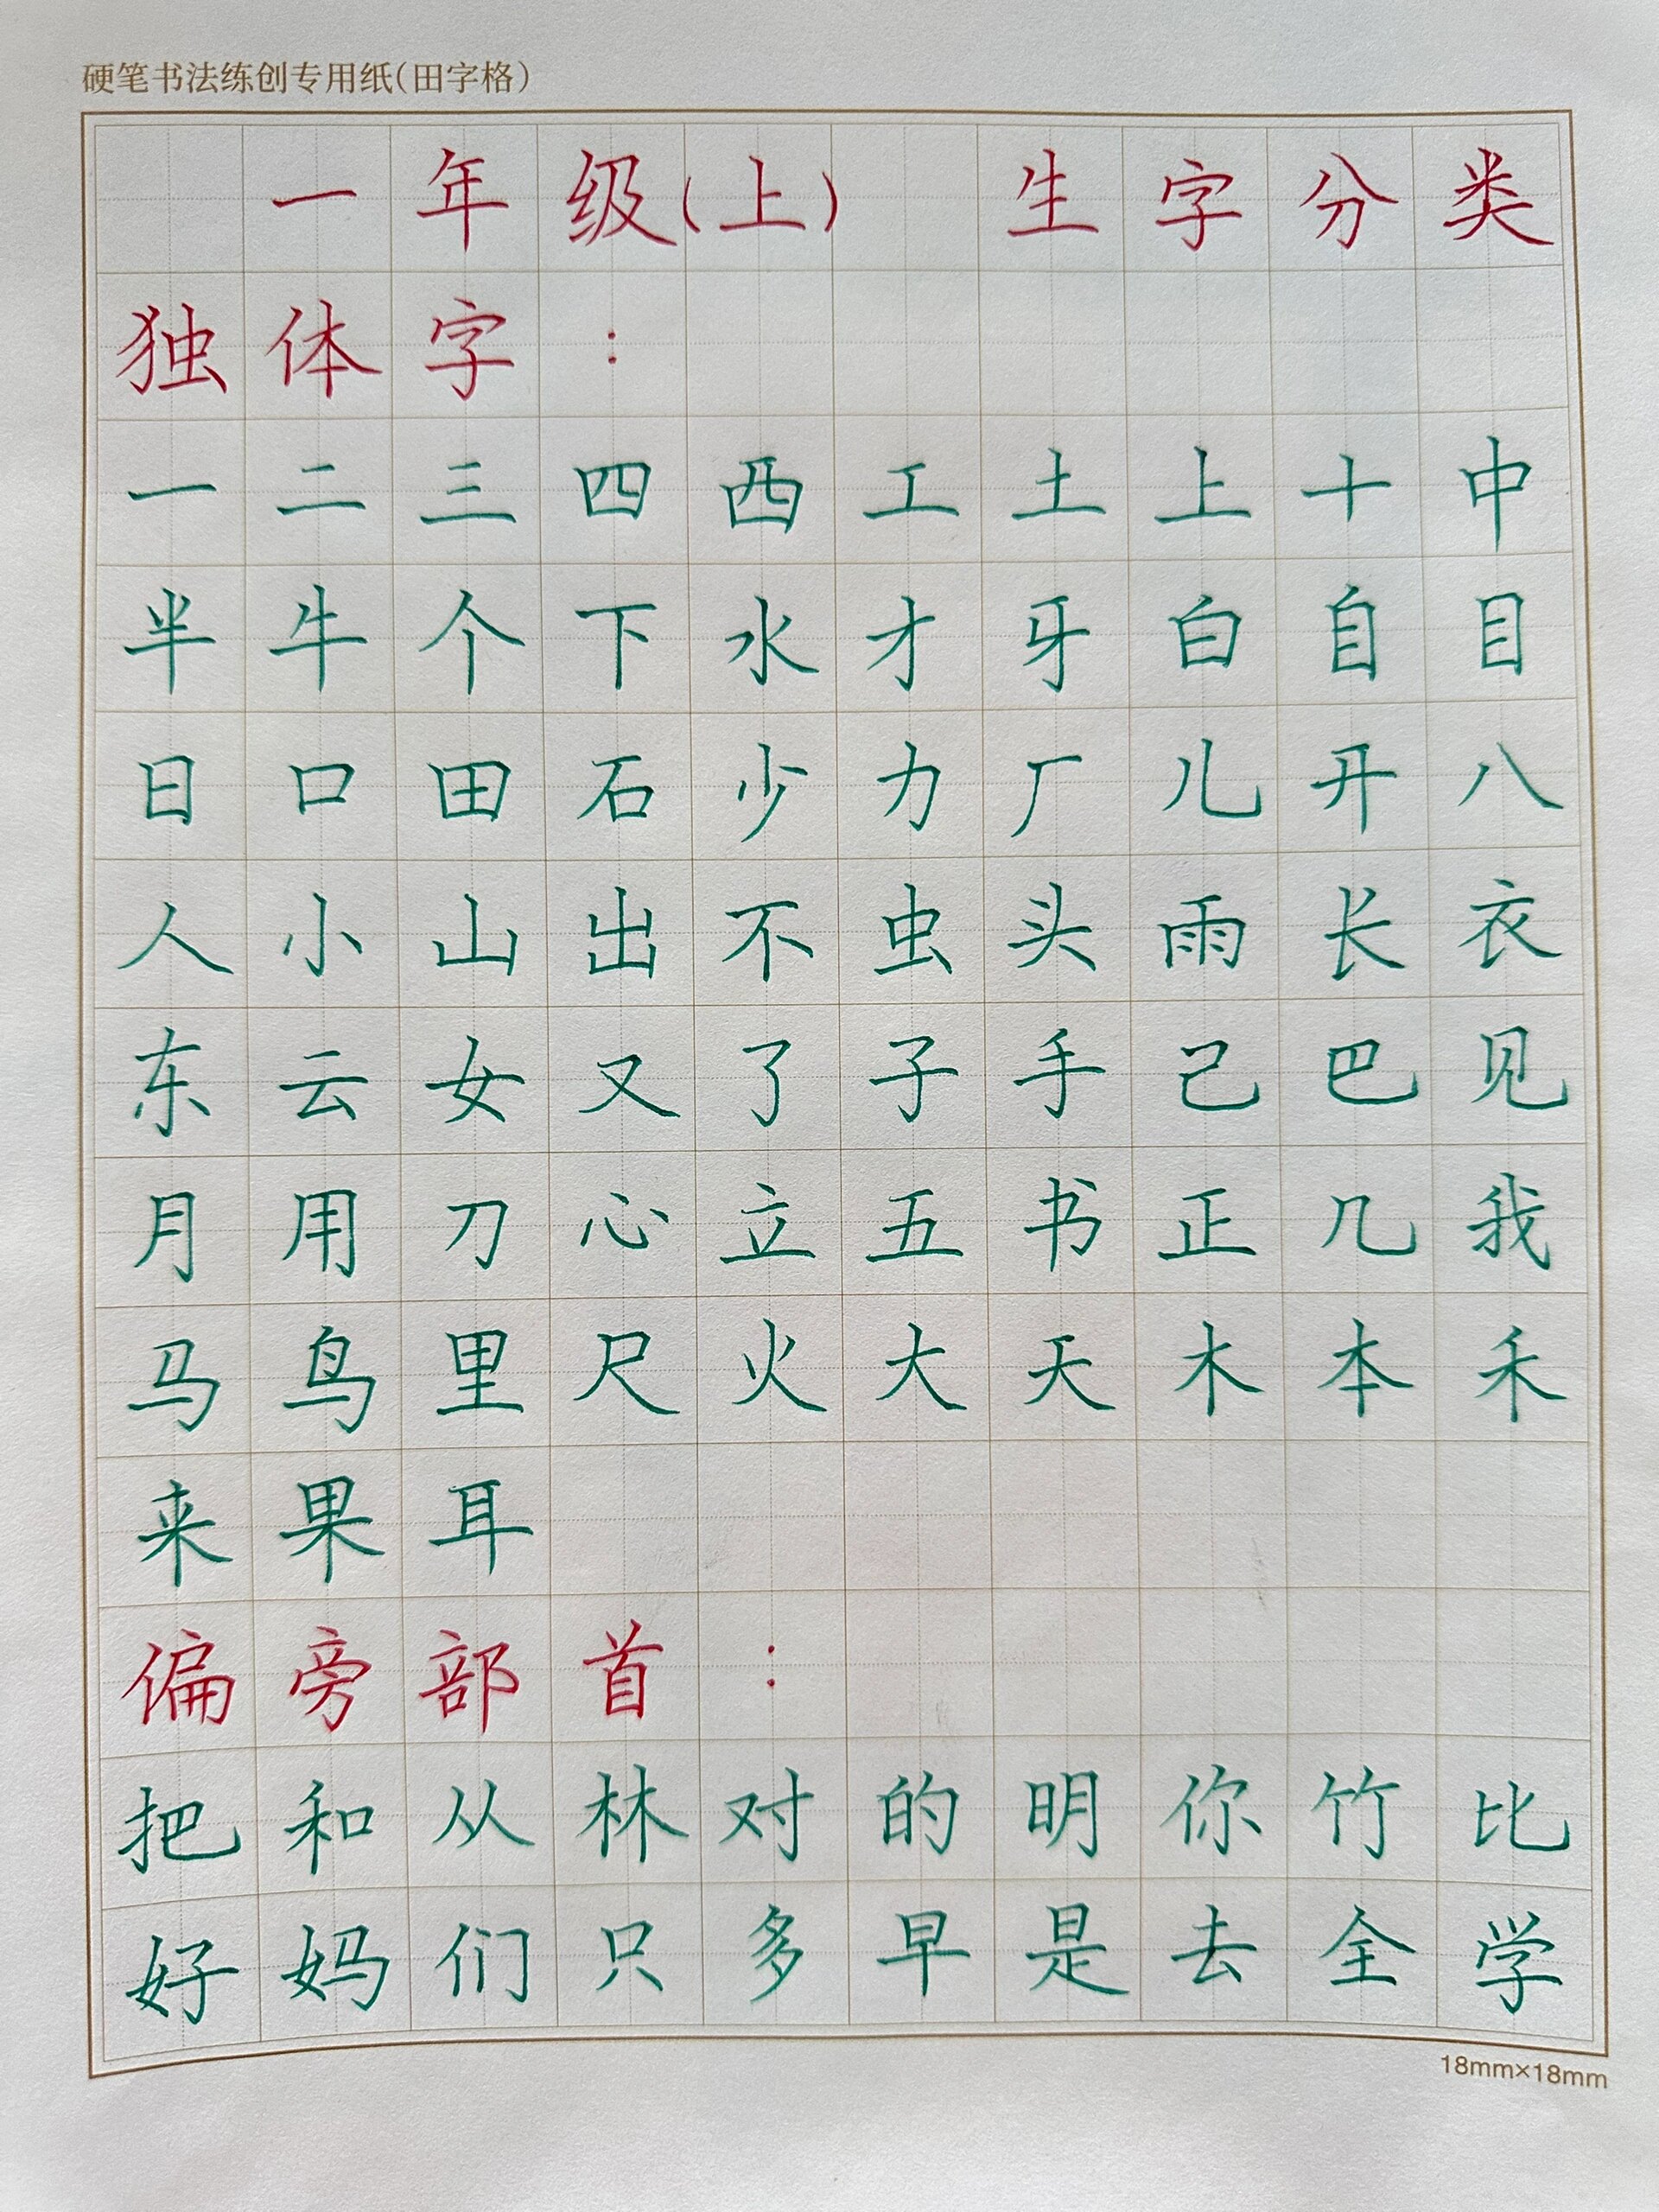 硬笔书法练创专用纸(田字格)
一年级(上) 生字分类
独体字:
一二三四西工土上十中
半牛个下水才牙白自目
日口田石少力厂儿开八
人小山出不虫头雨长衣
东云女又了子手己巴见
月用刀心立五书正几我
马鸟里尺火大天木本禾
来果耳
偏旁部首:
把和从林对的明你竹比
好妈们只多早是去全学
18mm×18mm